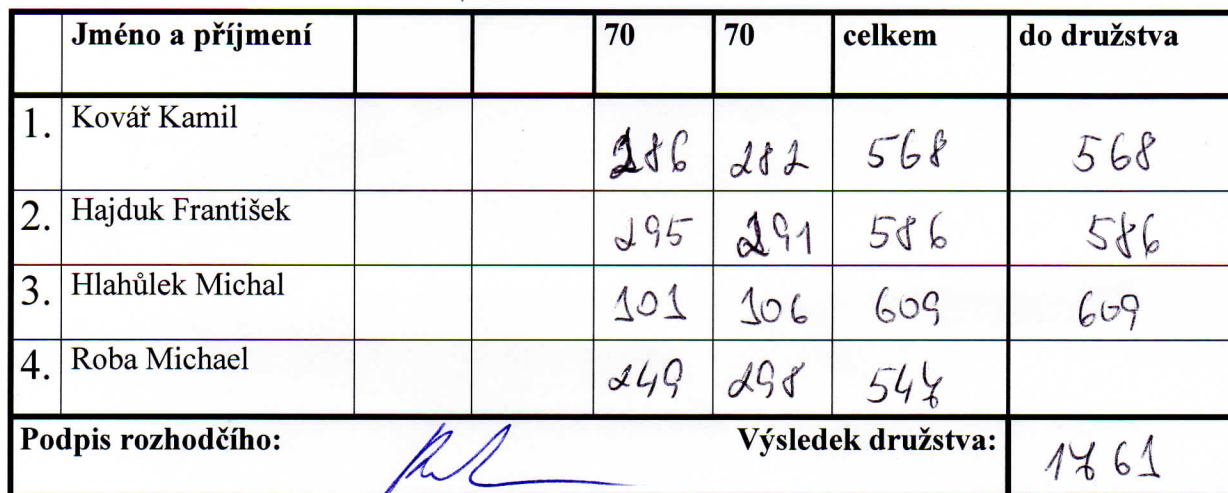 Jméno a příjmení 70 70 celkem do družstva
1. Kovář Kamil 286 282 568 568
2. Hajduk František 295 291 586 586
3. Hlahůlek Michal 303 306 609 609
4. Roba Michael 249 298 547
Podpis rozhodčího: Výsledek družstva: 1763